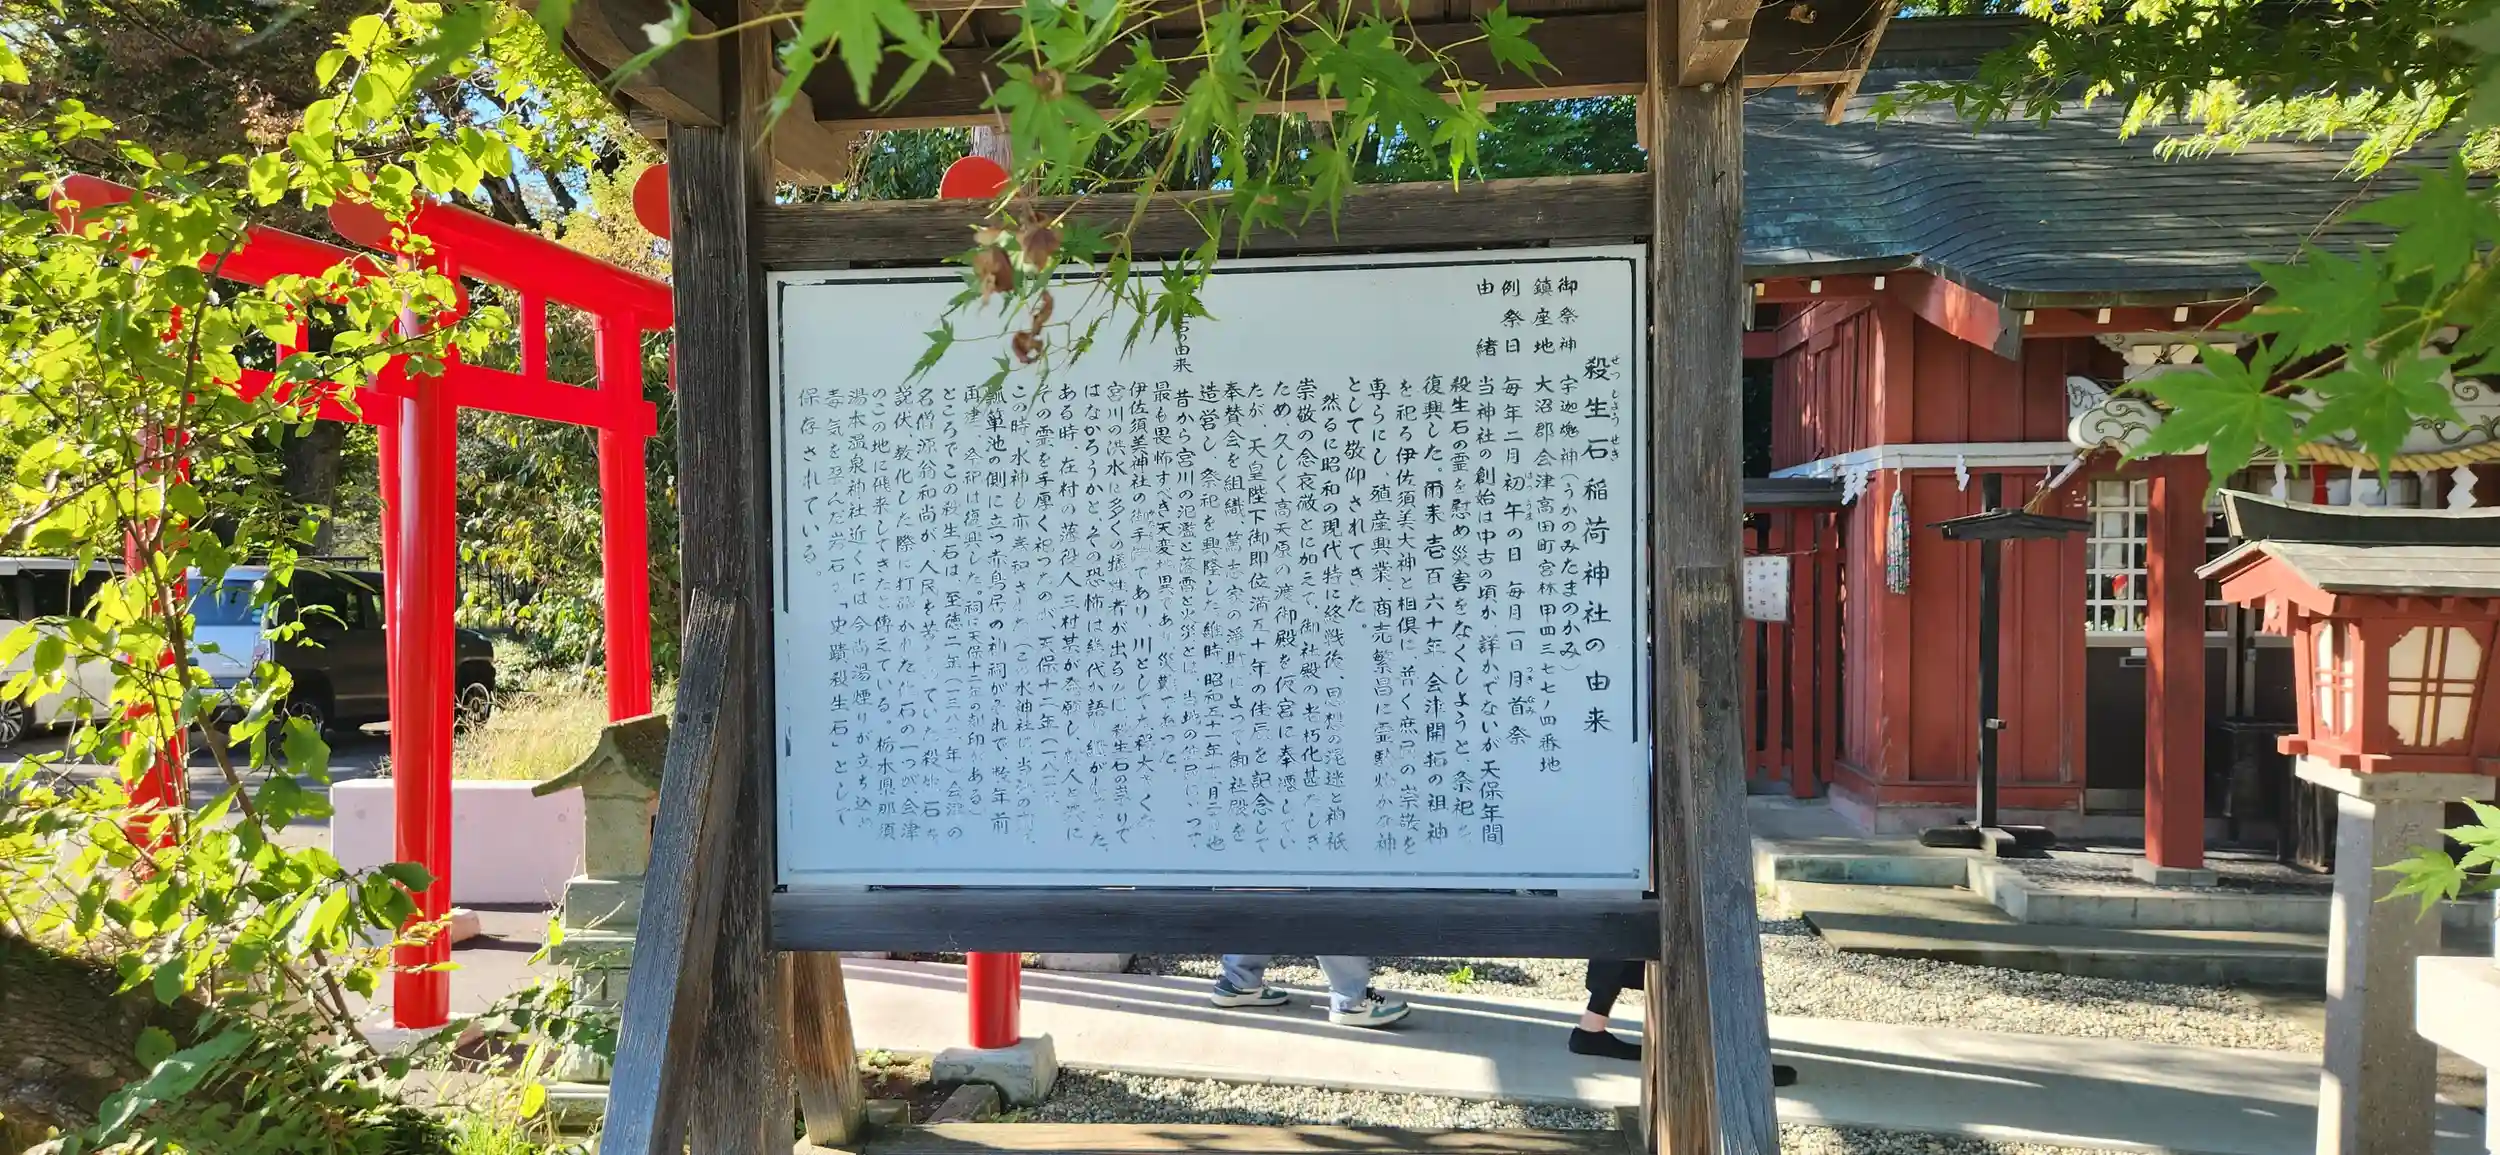 殺生石稲荷神社の由来
せっしょうせき
御祭神 宇迦魂神(うかのみたまのかみ)
鎮座地 大沼郡会津高田町宮林甲四三七七ノ四番地
例祭日 毎年二月初午の日 毎月一日 月首祭
由緒 当神社の創始は中古の頃か 詳かでないが 天保年間
殺生石の霊を慰め災害をなくしようと、祭祀を
復興した。爾来壱百六十年、会津開拓の祖神
を祀る伊佐須美大神と相倶に、普く庶民の崇敬を
専らにし、殖産興業、商売繁昌に霊験灼かな神
として敬仰されてきた。
然るに昭和の現代特に終戦後、思想の混迷と神祇
崇敬の念衰微とに加えて、御社殿の老朽化甚だしき
ため、久しく高天原の渡御殿を仮宮に奉遷してい
たが、天皇陛下御即位満五十年の佳辰を記念して
奉賛会を組織、篤志家の浄財によって御社殿を
造営し、祭祀を興隆した。維時、昭和五十一年十一月二
の由来 昔から宮川の氾濫と落雷と火災とは、当地の住民にとって
最も畏怖すべき天変地異であり災
伊佐須美神社の御手洗であり、川としても大きく
宮川の洪水に多くの犠牲者が出るのは、殺生石の祟りで
はなかろうかと、その恐怖は
ある時、在村の落役人三村某が発願し、
その霊を手厚く祀ったのが、天保十二年
この時、水神も亦
瓢箪池の側に立つ赤鳥居の社祠がそれで、数年前
再建、祭祀は復興した。祠に天保十二年の刻印がある)
ところでこの殺生石は、至徳二年(一三八 年)会津の
名僧、源翁和尚が、人民を苦 めていた殺生石を
説伏、教化した際に打砕かれた化石の一つが、会津
のこの地に飛来してきたと傳えている。栃木県那須
湯本温泉神社近くには今尚湯煙りが立ち込め
毒気を含んだ岩石が「史蹟殺生石」として
保存されている。